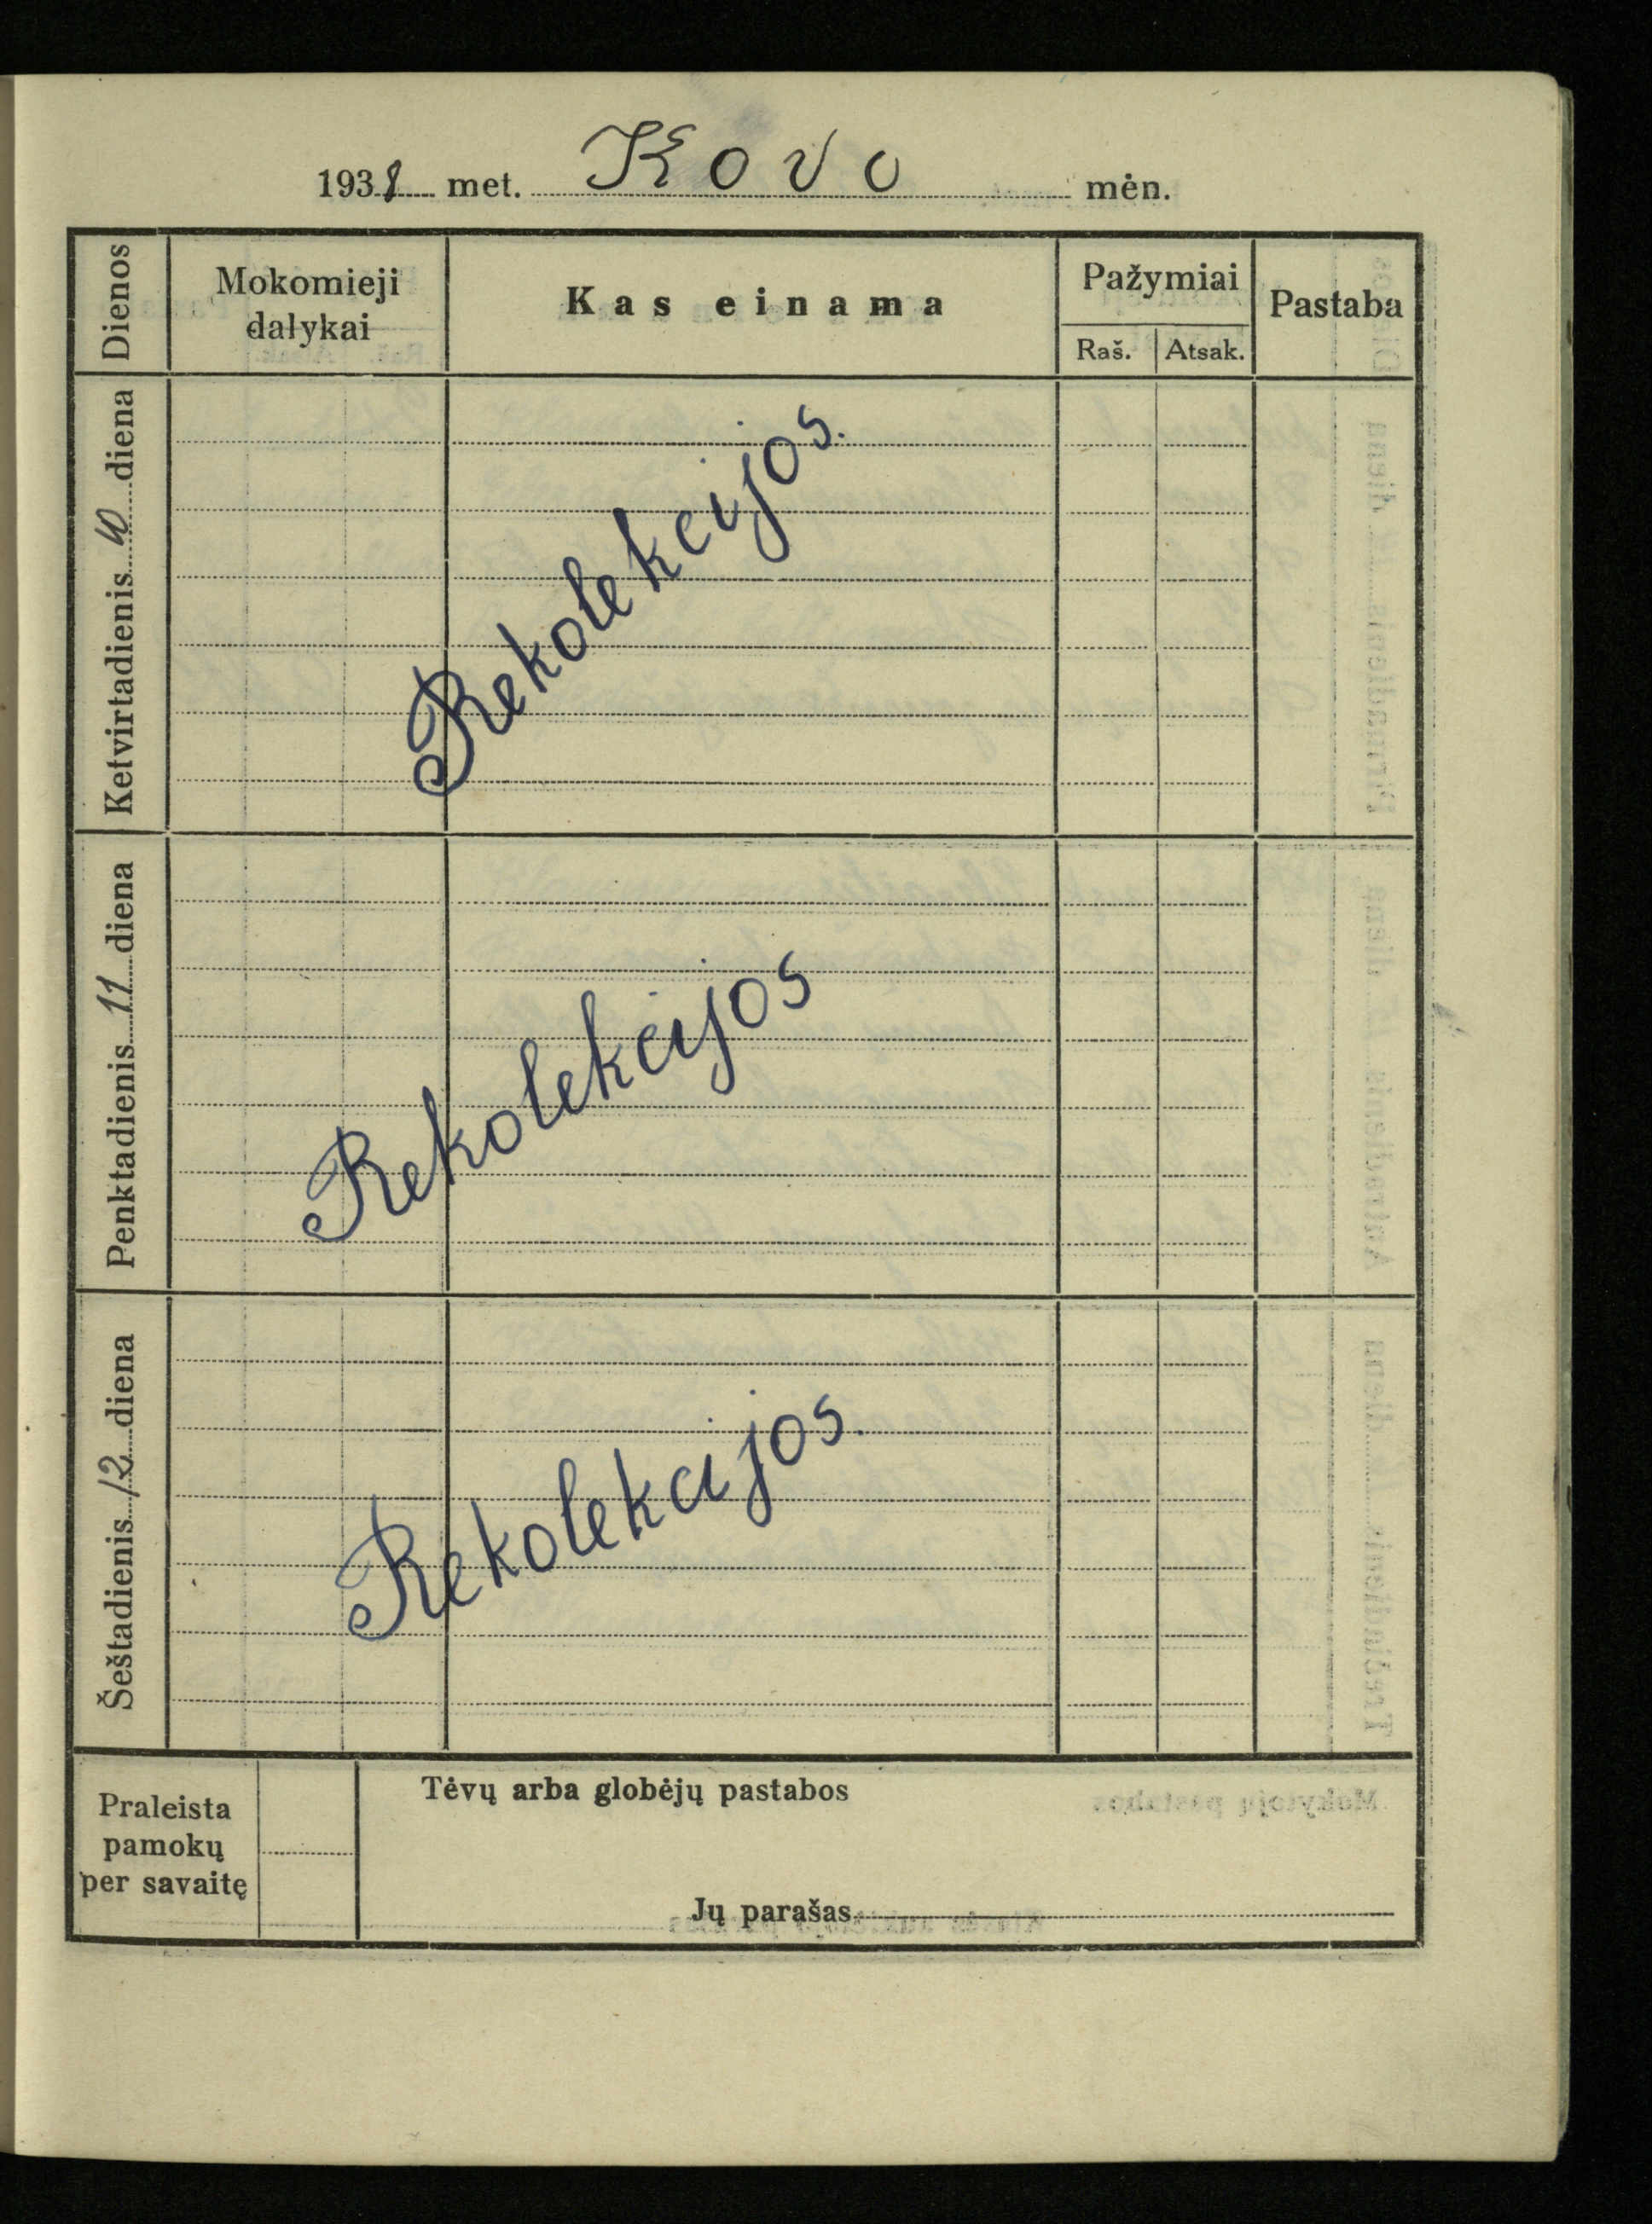 1938 met. Kovo mėn.
Dienos
Mokomieji dalykai
Kas einama
Pažymiai
Raš. Atsak.
Pastaba
Ketvirtadienis 10 diena
Rekolekcijos.
Penktadienis 11 diena
Rekolekcijos
Šeštadienis 12 diena
Rekolekcijos.
Praleista
pamokų
per savaitę
Tėvų arba globėjų pastabos
Jų parašas